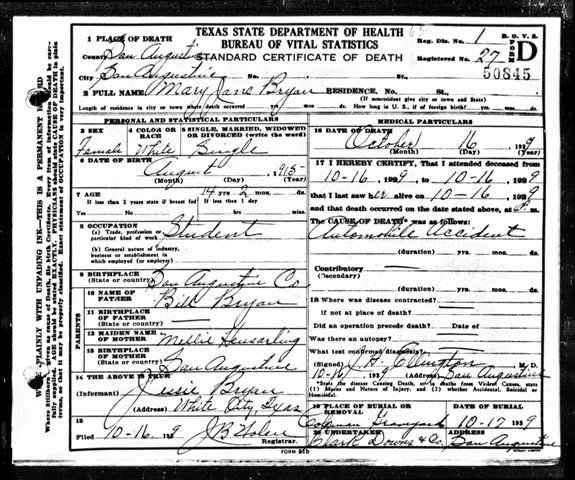 TEXAS STATE DEPARTMENT OF HEALTH
BUREAU OF VITAL STATISTICS
STANDARD CERTIFICATE OF DEATH
B. O. V. S.
FORM D
Reg. Dis. 1
Registered No. 27
50845
1 PLACE OF DEATH
County San Augustine
City San Augustine No. St.
2 FULL NAME Mary Jane Bryan RESIDENCE. No. St.
(If nonresident give city or town and State)
Length of residence in city or town where death occurred yrs. mos. ds. How long in U. S., if of foreign birth? yrs. mos. ds.
PERSONAL AND STATISTICAL PARTICULARS
3 SEX Female
4 COLOR OR RACE White
5 SINGLE, MARRIED, WIDOWED OR DIVORCED (write the word) Single
6 DATE OF BIRTH August 1915
(Month) (Day) (Year)
7 AGE 14 yrs 2 mos. ds.
If less than 2 years state if breast fed
If less than 1 day
8 OCCUPATION
(a) Trade, profession, or particular kind of work Student
(b) General nature of industry, business or establishment in which employed (or employer)
9 BIRTHPLACE
(State or country) San Augustine Co
PARENTS
10 NAME OF FATHER Bill Bryan
11 BIRTHPLACE OF FATHER
(State or country)
12 MAIDEN NAME OF MOTHER Mellie
13 BIRTHPLACE OF MOTHER
(State or country) San Augustine
14 THE ABOVE IS TRUE
(Informant) Jessie Bryan
(Address) White City Texas
15
Filed 10-16 1929 J B
Registrar.
MEDICAL PARTICULARS
16 DATE OF DEATH
October 16 1929
(Month) (Day) (Year)
17 I HEREBY CERTIFY, That I attended deceased from
10-16, 1929 to 10-16, 1929
that I last saw her alive on 10-16, 1929
and that death occurred on the date stated above, at m.
The CAUSE OF DEATH* was as follows:
Automobile Accident
(duration) yrs. mos. ds.
Contributory
(Secondary)
(duration) yrs. mos. ds.
18 Where was disease contracted?
if not at place of death?
Did an operation precede death? Date of
Was there an autopsy?
What test confirmed diagnosis?
(Signed) M. D.
10-16, 1929 San Augustine
*State the disease Causing Death, or in deaths from Violent Causes, state
(1) Means and Nature of Injury, and (2) whether Accidental, Suicidal or Homicidal.
19 PLACE OF BURIAL OR REMOVAL Coleman Graveyard
DATE OF BURIAL 10-17 1929
20 UNDERTAKER Clark Downs & Co. San Augustine